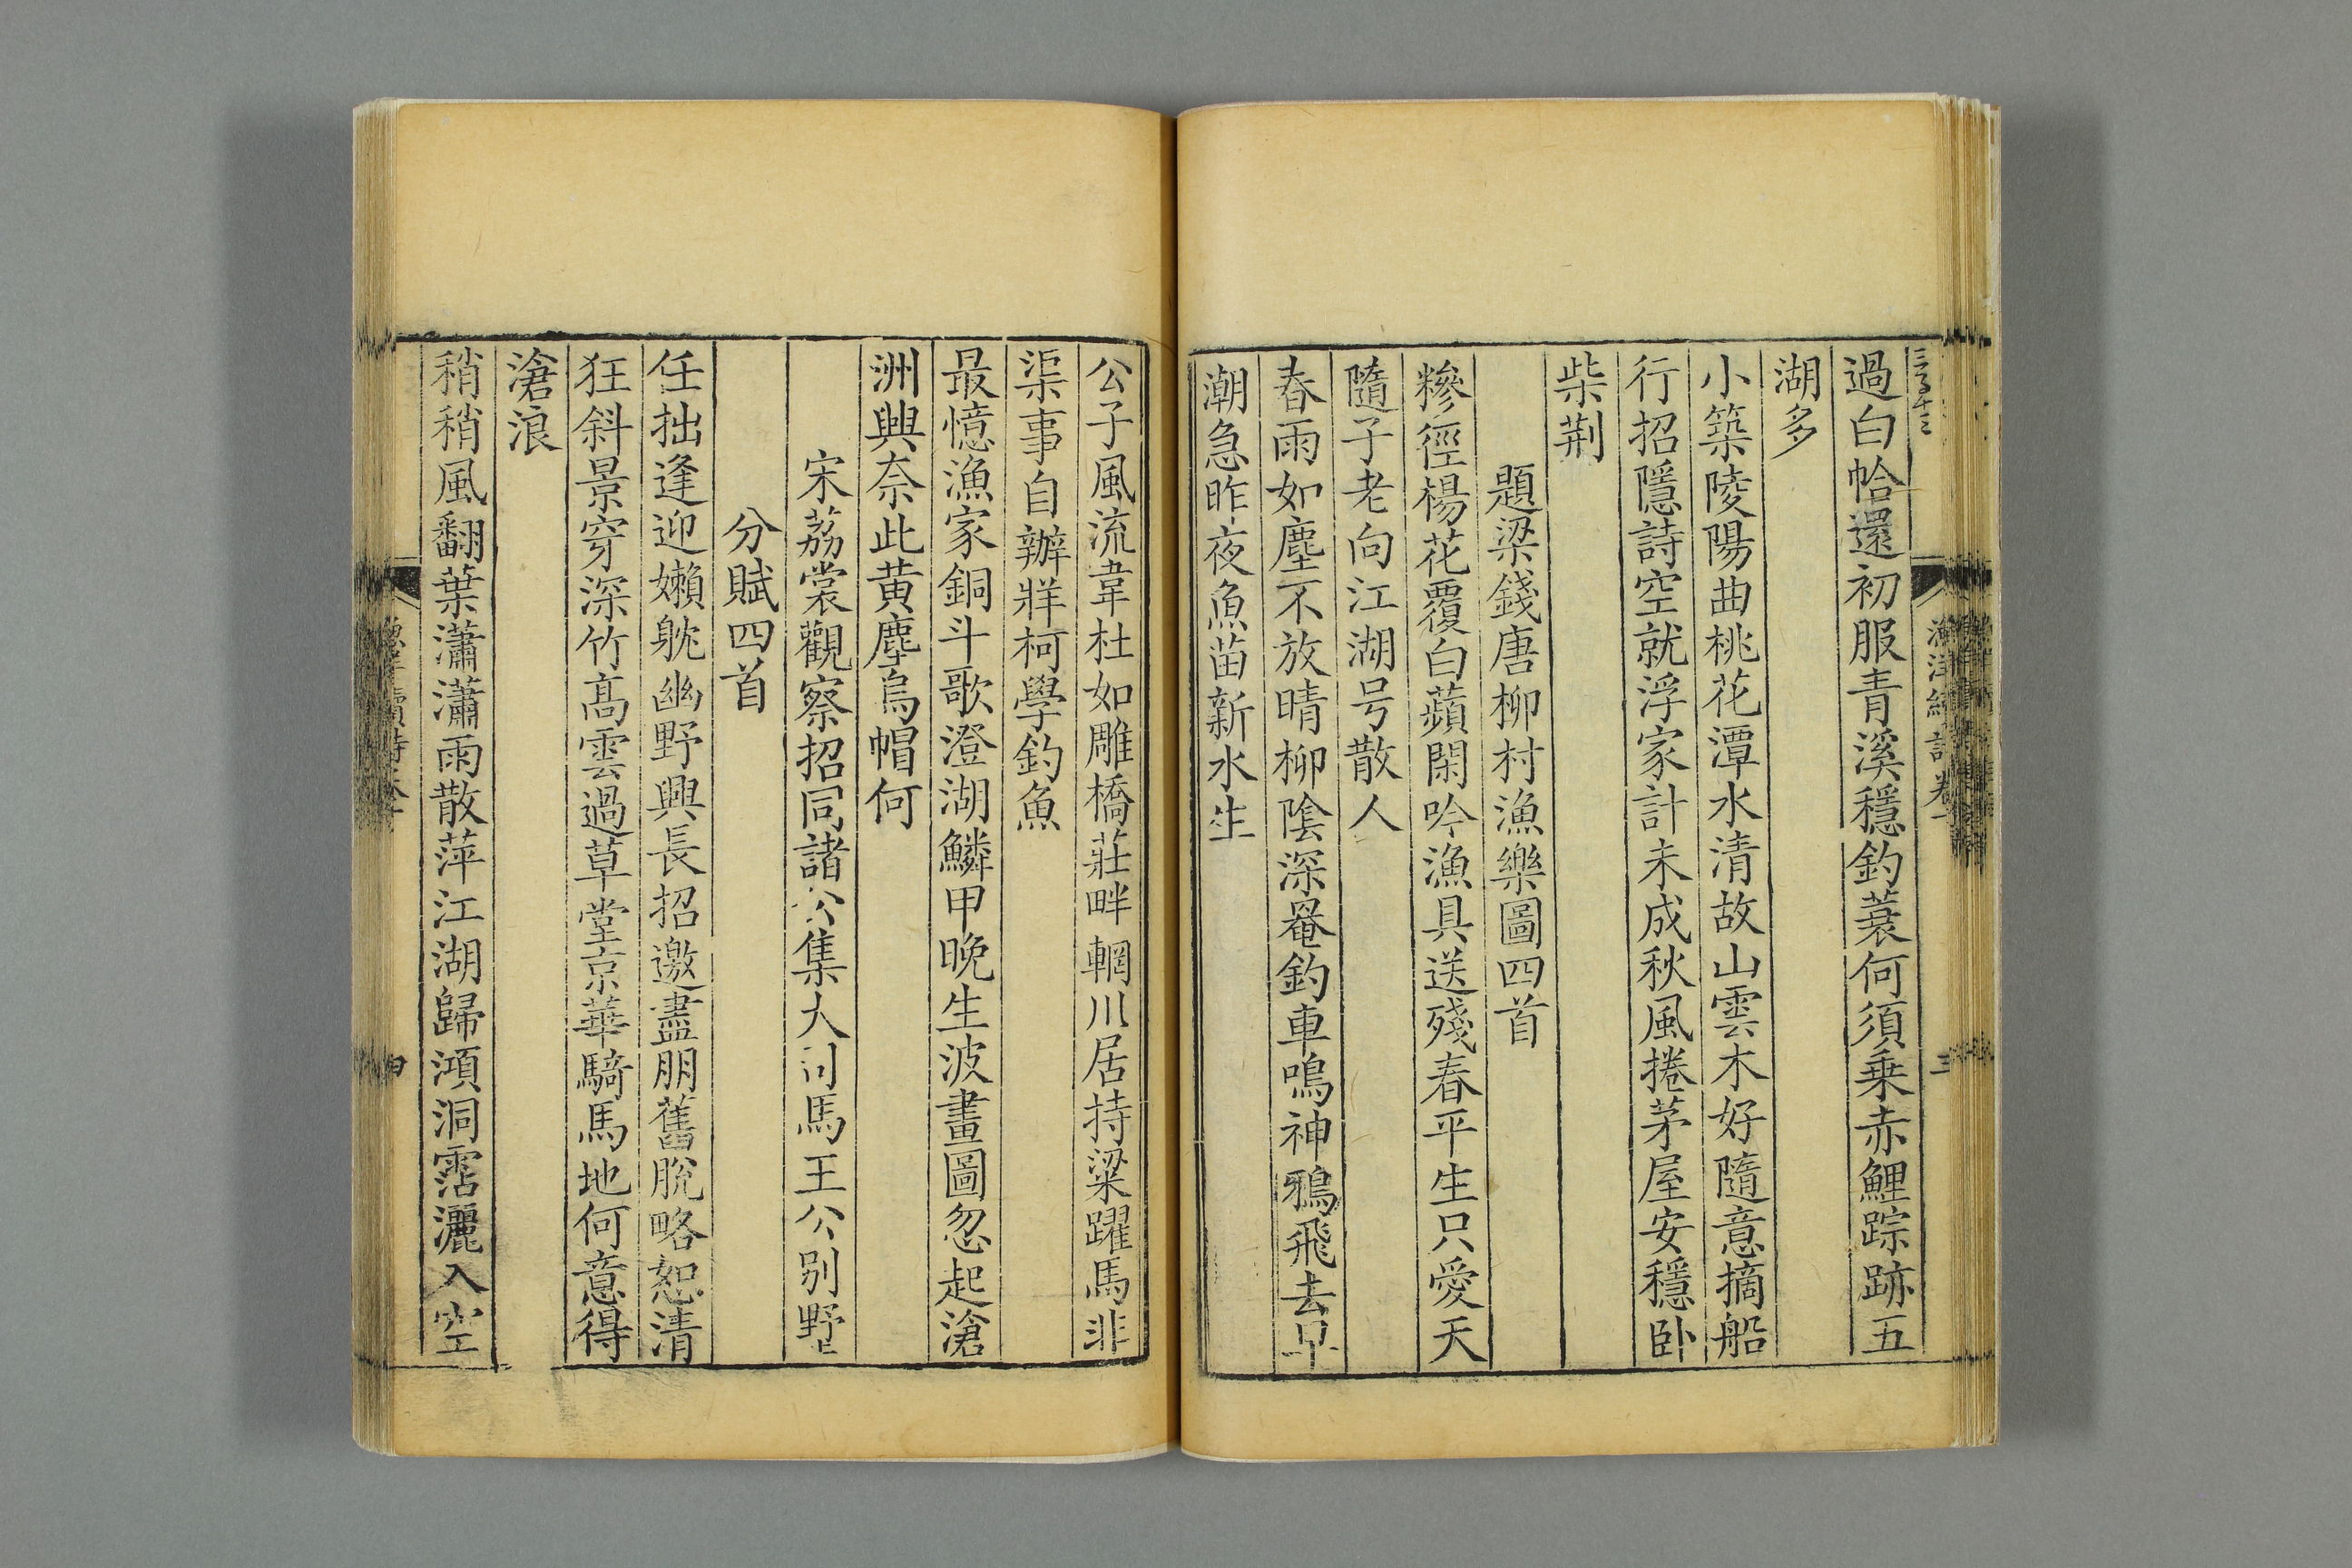 過白帢還初服青溪穩釣蓑何須乗赤鯉踪跡五
湖多
小築陵陽曲桃花潭水清故山雲木好隨意摘船
行招隱詩空就浮家計未成秋風捲茅屋安穩卧
柴荆
題梁錢唐柳村漁樂圖四首
糝徑楊花覆白蘋閑吟漁具送殘春平生只愛天
隨子老向江湖号散人
春雨如塵不放晴柳陰深罨釣車鳴神鴉飛去早
潮急昨夜魚苗新水生
公子風流韋杜如雕橋莊畔輞川居持粱躍馬非
渠事自辦牂柯學釣魚
最憶漁家銅斗歌澄湖鱗甲晚生波畫圖忽起滄
洲興奈此黄塵烏帽何
宋荔裳觀察招同諸公集大司馬王公别野上
分賦四首
任拙逢迎嬾躭幽野興長招邀盡朋舊脫略恕清
狂斜景穿深竹髙雲過草堂京華騎馬地何意得
滄浪
稍稍風翻葉瀟瀟雨散萍江湖歸澒洞霑灑入空